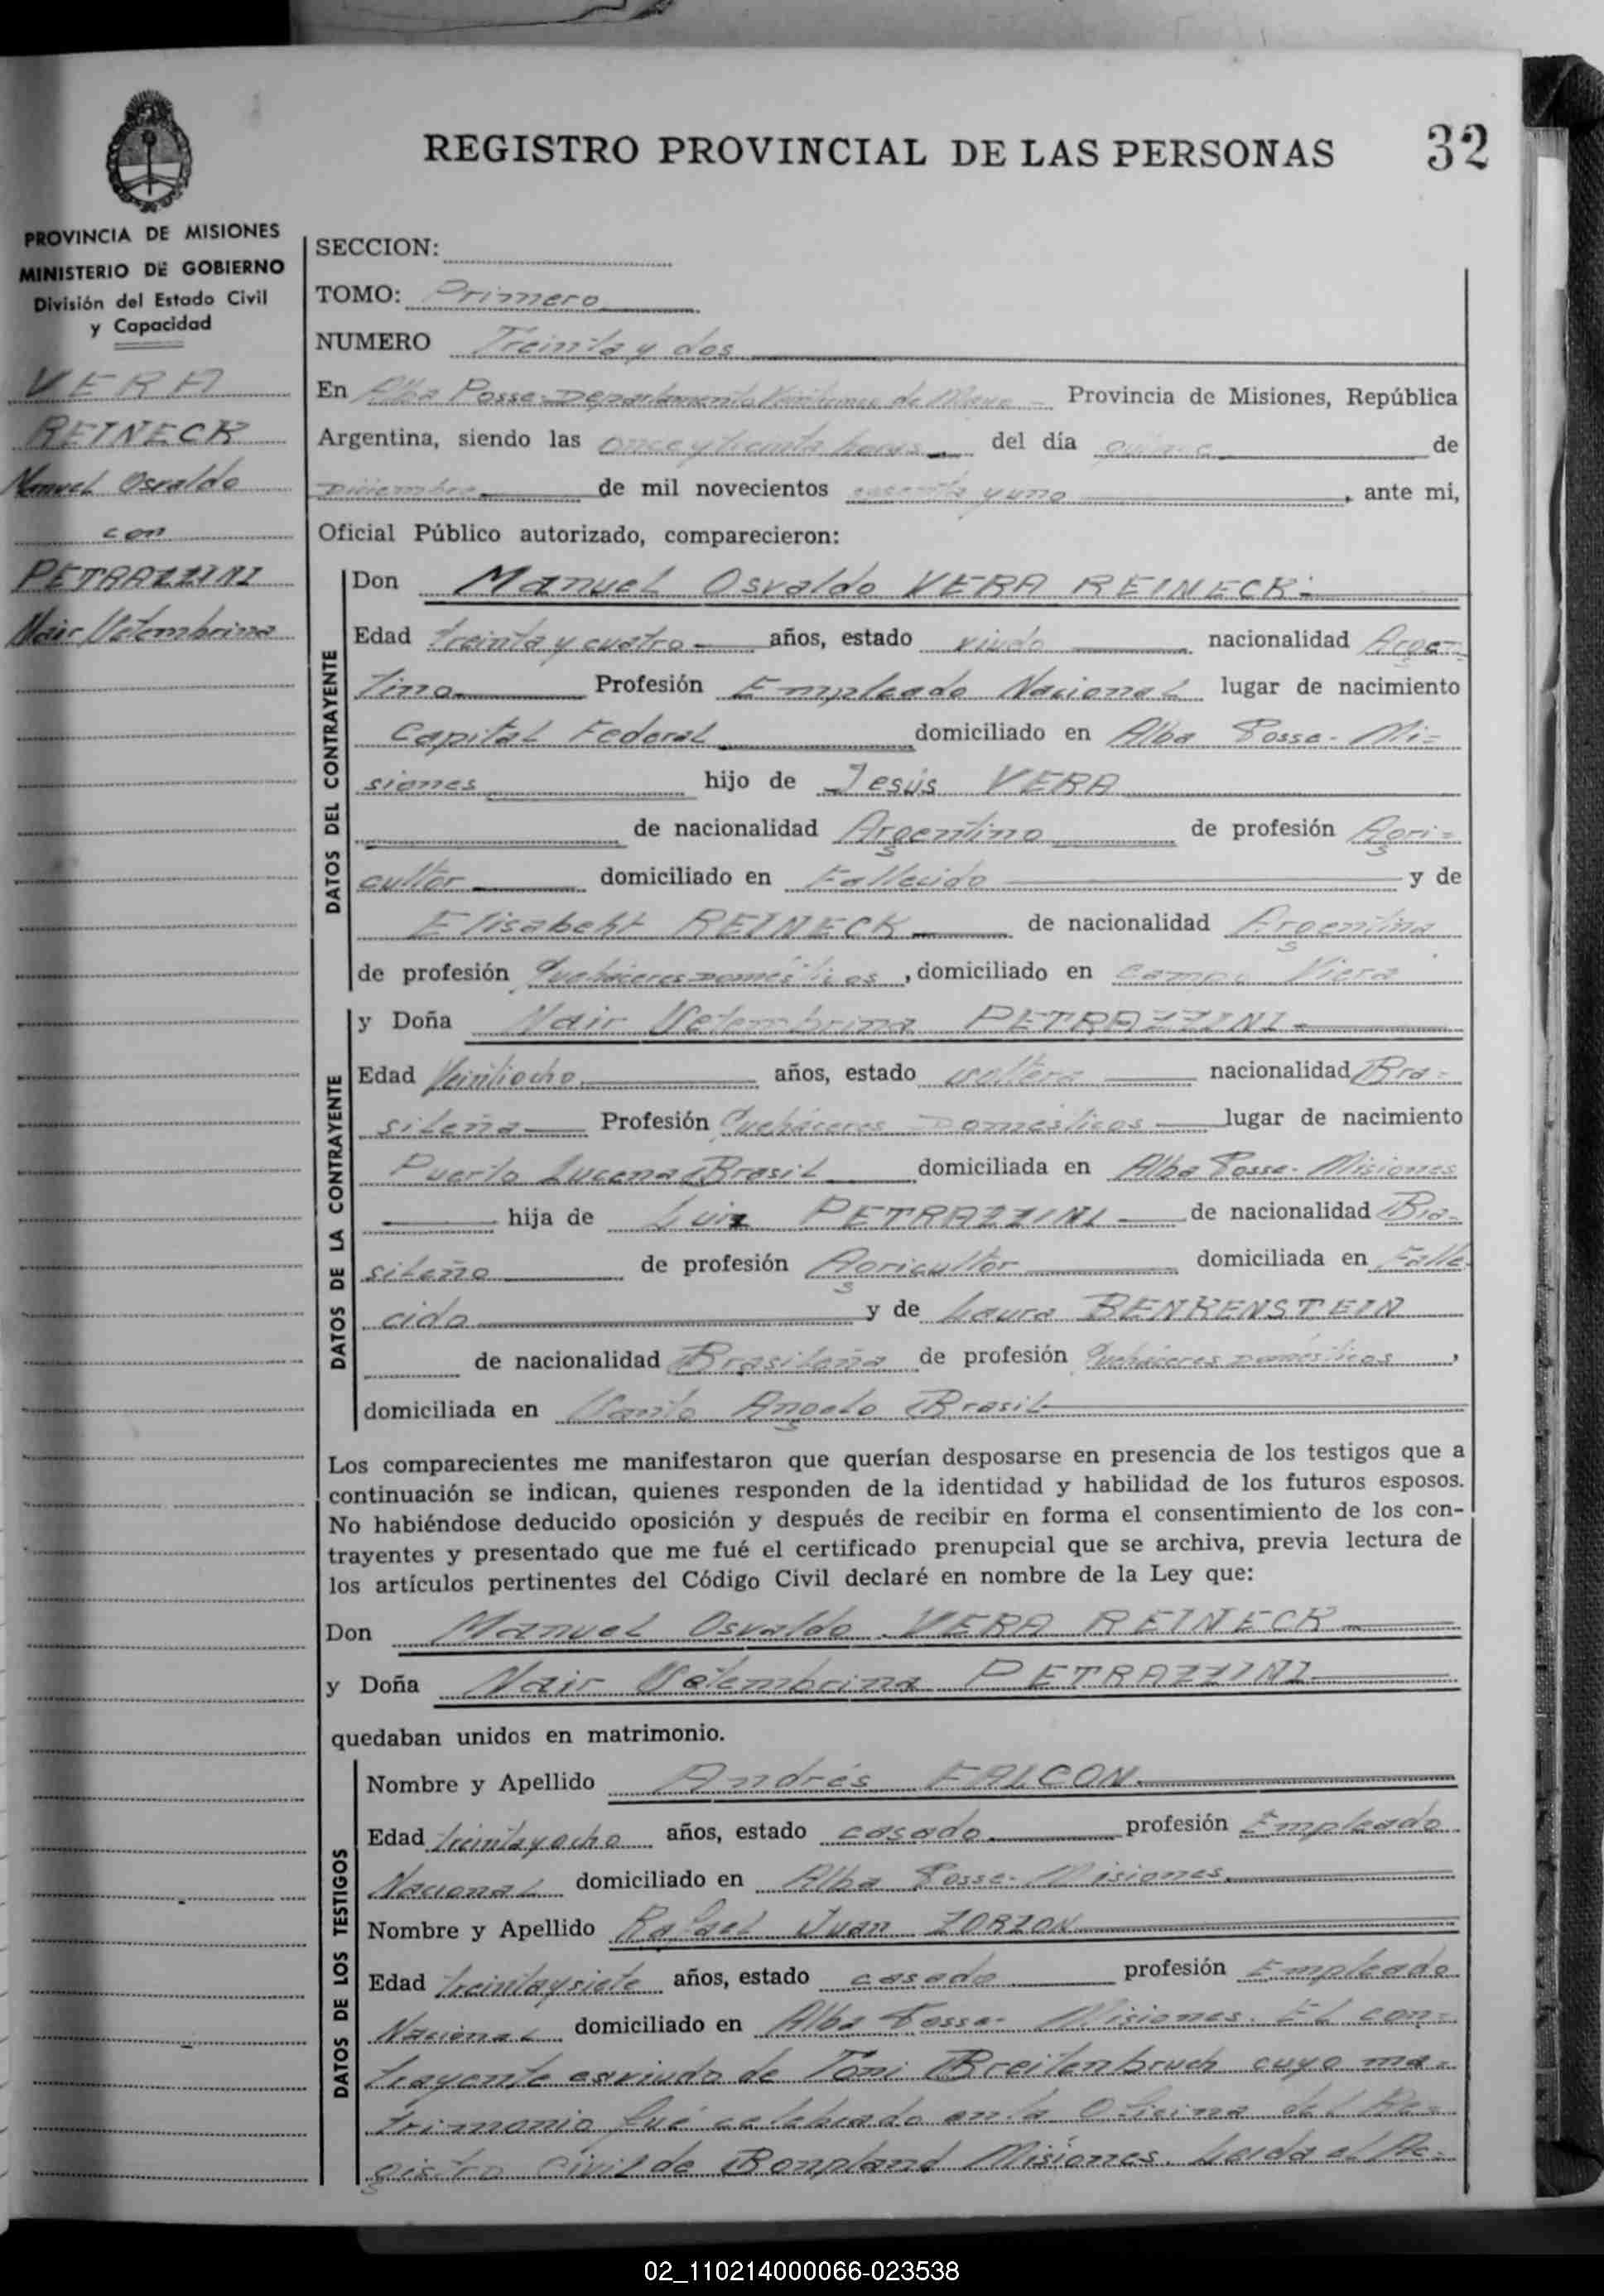 REGISTRO PROVINCIAL DE LAS PERSONAS
32
PROVINCIA DE MISIONES
MINISTERIO DE GOBIERNO
División del Estado Civil
y Capacidad
VERA
REINECK
Manuel Osvaldo
con
PETRAZZINI
Nair Setembrina
SECCION:
TOMO: Primero
NUMERO Treinta y dos
En Alba Posse-Departamento Veinticinco de Mayo - Provincia de Misiones, República
Argentina, siendo las once y treinta horas del día quince de
Diciembre de mil novecientos sesenta y uno, ante mi,
Oficial Público autorizado, comparecieron:
DATOS DEL CONTRAYENTE
Don Manuel Osvaldo VERA REINECK
Edad treinta y cuatro años, estado viudo nacionalidad Argen-
tina Profesión Empleado Nacional lugar de nacimiento
Capital Federal domiciliado en Alba Posse-Mi-
siones hijo de Jesús VERA
de nacionalidad Argentino de profesión Agri-
cultor domiciliado en Fallecido y de
Elisabeht REINECK de nacionalidad Argentina
de profesión Quehaceres Domésticos, domiciliado en Campo Viera
DATOS DE LA CONTRAYENTE
y Doña Nair Setembrina PETRAZZINI
Edad Veintiocho años, estado soltera nacionalidad Bra-
sileña Profesión Quehaceres Domésticos lugar de nacimiento
Puerto Lucena Brasil domiciliada en Alba Posse-Misiones
hija de Luiz PETRAZZINI de nacionalidad Bra-
sileño de profesión Agricultor domiciliada en Falle
cido y de Laura BENKENSTEIN
de nacionalidad Brasileña de profesión Quehaceres Domésticos,
domiciliada en Santo Angelo Brasil
Los comparecientes me manifestaron que querían desposarse en presencia de los testigos que a
continuación se indican, quienes responden de la identidad y habilidad de los futuros esposos.
No habiéndose deducido oposición y después de recibir en forma el consentimiento de los con-
trayentes y presentado que me fué el certificado prenupcial que se archiva, previa lectura de
los artículos pertinentes del Código Civil declaré en nombre de la Ley que:
Don Manuel Osvaldo VERA REINECK
y Doña Nair Setembrina PETRAZZINI
quedaban unidos en matrimonio.
DATOS DE LOS TESTIGOS
Nombre y Apellido Andrés FALCON
Edad treinta y ocho años, estado casado profesión Empleado
Nacional domiciliado en Alba Posse-Misiones
Nombre y Apellido Rafael Juan ZORZON
Edad treinta y siete años, estado casado profesión Empleado
Nacional domiciliado en Alba Posse- Misiones. El con-
trayente es viudo de Toni Breitenbruch cuyo ma-
trimonio fué celebrado en la Oficina del Re-
gistro Civil de Bonpland Misiones. Leida el Ac-
02_110214000066-023538